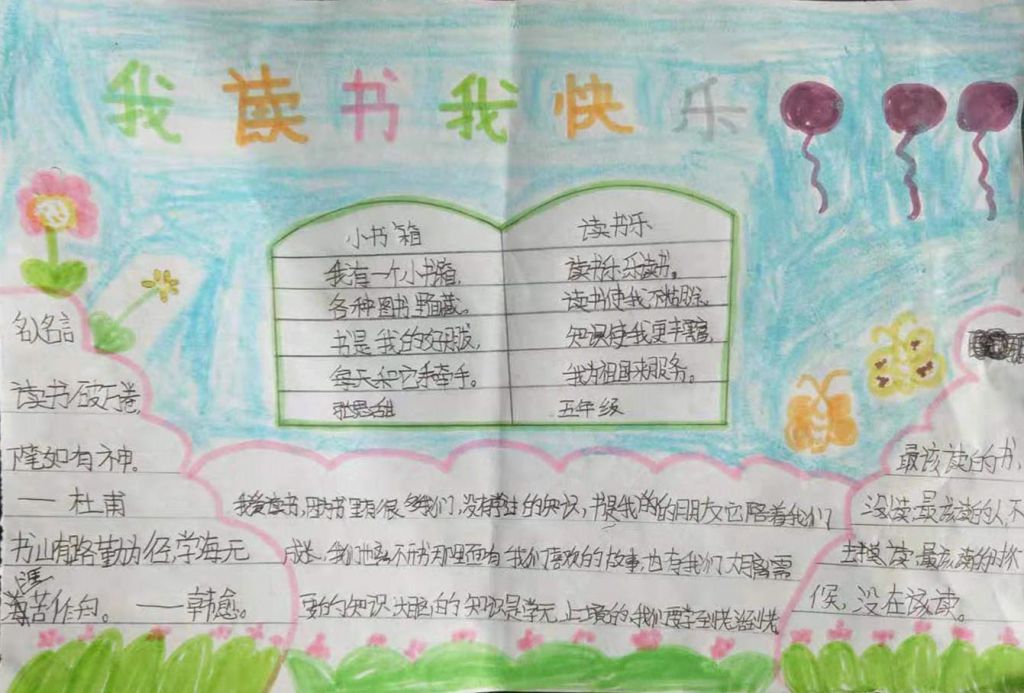 我读书我快乐
小书箱
我有一个小书箱,
各种图书里面藏。
书是我的好朋友,
每天和它手牵手。
五年级
读书乐
读书乐,乐读书。
读书使我不糊涂,
知识使我更丰富,
我为祖国来服务。
名人名言
读书破万卷,
下笔如有神。
——杜甫
书山有路勤为径,学海无
涯苦作舟。——韩愈。
我爱读书,因为书里有很多我们没有学过的知识,书是我的朋友它陪着我们
成长,书里还有我们喜欢的故事,也有我们大脑需
要的知识,大脑的知识是学无止境的,我们要
最该读的书,
没读,最该读的人不
去读,最该读的时
候,没在读。